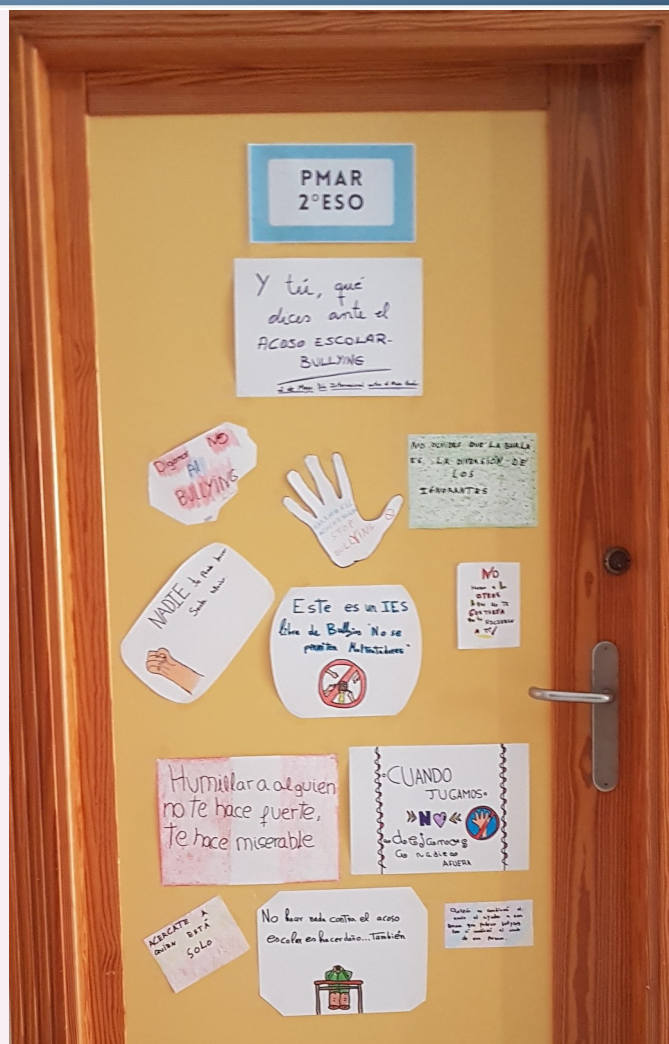 PMAR
2ºESO
Y tú, qué
dices ante el
ACOSO ESCOLAR-
BULLYING
2 de Mayo Día Internacional contra el Acoso Escolar
Digamos NO
Al
BULLYING
STOP
BULLYING
NO OLVIDES QUE LA BURLA
ES LA DIVERSIÓN DE
LOS
IGNORANTES
NADIE te Puede hacer
Sentir inferior
Este es un IES
libre de Bullying "No se
permiten Maltratadores"
NO
hagas a los
OTROS
lo que no te
GUSTARÍA
que te HICIERAN
A TÍ
Humillar a alguien
no te hace fuerte,
te hace miserable
CUANDO
JUGAMOS
NO
dejamos
a nadie
AFUERA
ACERCATE A
QUIEN ESTÁ
SOLO
No hacer nada contra el acoso
escolar es hacer daño...También